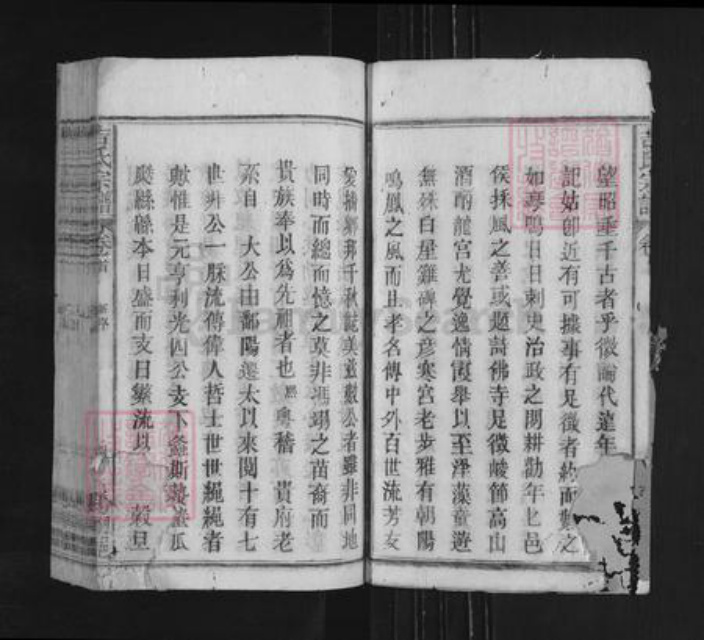 吉氏宗譜
望昭垂千古者乎微論代遠年
記姑卽近有可據事有足徵者約而數之
如亭鴨日日刺史治政之閒耕勸年七邑
侯採風之善或題詩佛寺足徵峻節高山
酒酌龍宮尤覺逸情霞舉以至浮藻童遊
無殊白星難碑之彦寒宮老步雅有朝陽
鳴鳳之風而且孝名傳中外百世流芳友
愛播鄉邦千秋誌美茲數公者雖非同地
同時而總而憶之莫非馮翊之苗裔而
貴族奉以爲先祖者也 熙粵稽 貴府老
系自 大公由鄱陽遷太以來閱十有七
世井公一脈流傳偉人哲士世世繩繩者
數惟是元亨利光四公支下螽斯蟄蟄瓜
瓞緜緜本日盛而支日繁流以 穀旦
吉氏宗譜 卷首